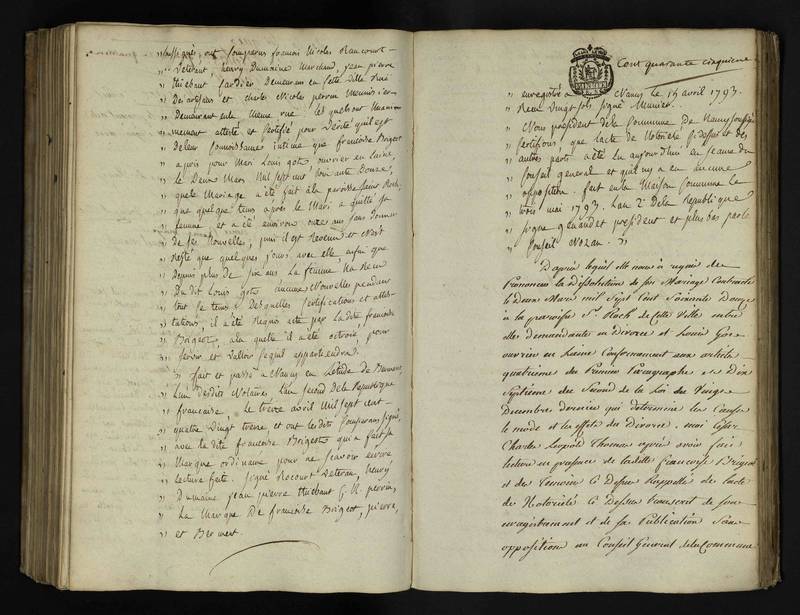 „ soussignés, ont comparus françois Nicolas Raucourt
„ Veteran, henry Dumaine Marchand, jean pierre
„ thiebaut jardier Demeurans en cette ville Rue
„ Des artisans et charles Nicolas perrin Menuisier
„ Demeurant même rue lesquels ont Unanim
„ mement attesté et certifié pour Vérité qu'il est
„ De leur Connoissance intime que francoise Brigeot
„ a pris pour Mari Louis gote, ouvrier en Laine,
„ le Deux Mars Mil sept cent soixante Douze,
„ que le Mariage a été fait à la paroisse saint Roch,
„ que quelque tems après le Mari a quitté sa
„ femme et a été environ onze ans sans donner
„ De ses Nouvelles, puis il est Revenu et n'est
„ Resté que quelques jours avec elle, enfin que
„ Depuis plus de six ans La femme Na Reçu
„ Du dit Louis gote aucune Nouvelles pendant
„ tout ce tems; Desquelles Certifications et attes-
„ tations, il a été Requis acte par La dite francoise
„ Brigeot, a la quelle il a été octroié, pour
„ servir et valloir ce qui appartiendra.
„ fait et passé à Nancy en L'etude de
„ L'un Desdits Notaires L'an second de la Republique
„ francaise, Le treize avril Mil sept cent
„ quatre Vingt treize, et ont les dits Comparans signé,
„ avec la dite francoise Brigeot qui a fait sa
„ Marque ordinaire pour ne scavoir écrire
„ Lecture faite. signé Rocourt Veteran, henry
„ Dumaine jean pierre thiebaut C. N. perrin,
„ La Marque De francoise Brigeot, pierre,
„ et
Cent quarante cinquieme
„ enregistré a Nancy le 15 avril 1793.
„ Recu Vingt sols signé Munier.
„ Nous président de la Commune de Nancy soussigné
„ Certifions, que l'acte de Notoriété ci dessus et des
„ autres parts a été Lu aujourd'hui en seance du
„ Conseil general et qu'il n'y a eu aucune
„ opposition. fait en la Maison Commune le
„ trois mai 1793. L'an 2e De la Republique
„ signé genaudet président et plus bas par le
„ Conseil Nozan. „
D'après lequel elle nous a requis de
Prononcer la Dissolution de son Mariage Contracté
le Deux Mars mil Sept Cent Soixante Douze
à la paroisse St Roch de Cette Ville entre
elle demanderesse en Divorce et Louis Gote
ouvrier en Laine Conformément aux articles
quatrieme du Premier Paragraphe et Dix
Septieme du Second de la Loi du Vingt
Decembre dernier qui determine les Causes
le mode et les effets du Divorce, moi
Charles Leopold Thomas après avoir fait
lecture en presence de ladite françoise Brigeot
et des Temoins Ci Dessus Rappellés de l'acte
de Notoriété Ci Dessus Transcrit de son
enregistrement et de sa Publication Sans
opposition au Conseil General de la Commune